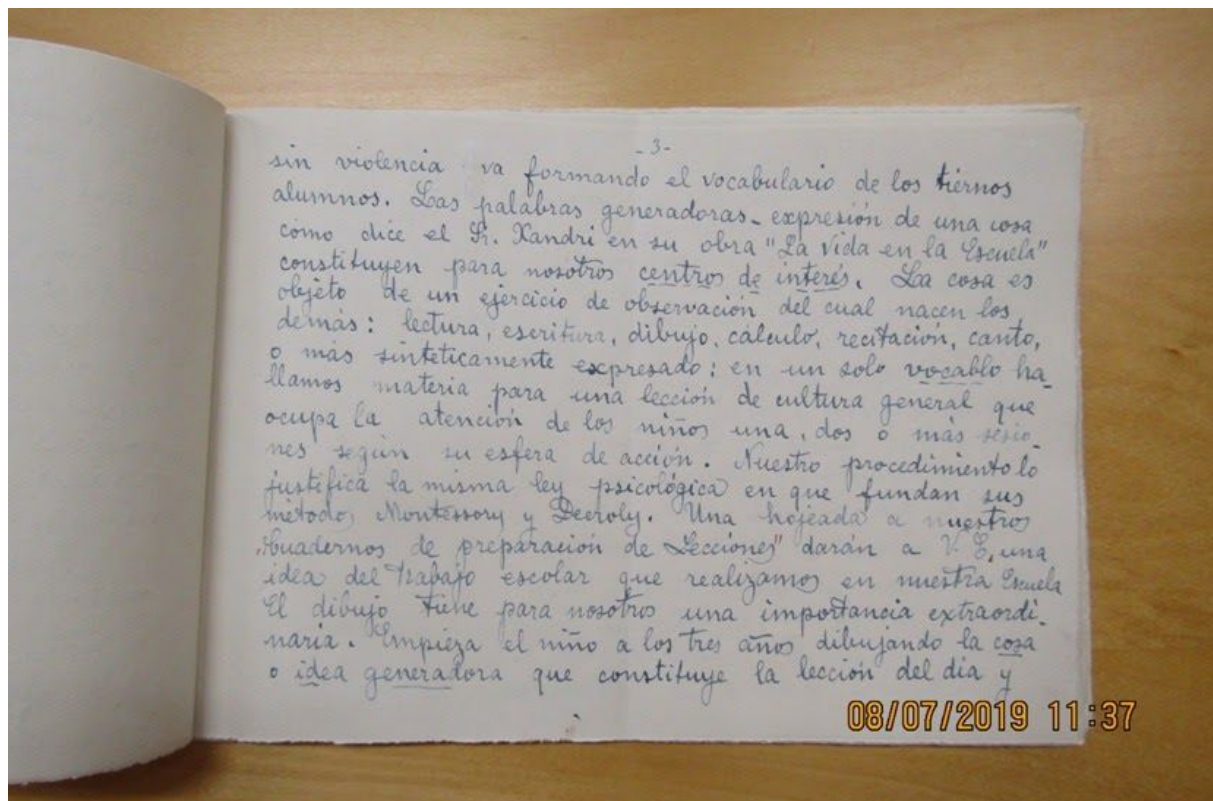 -3-
sin violencia va formando el vocabulario de los tiernos
alumnos. Las palabras generadoras - expresión de una cosa
como dice el Sr. Xandri en su obra "La vida en la Escuela"
constituyen para nosotros centros de interés. La cosa es
objeto de un ejercicio de observación del cual nacen los
demás: lectura, escritura, dibujo, cálculo, recitación, canto,
o más sintéticamente expresado: en un solo vocablo ha_
llamos materia para una lección de cultura general que
ocupa la atención de los niños una, dos o más sesio_
nes según su esfera de acción. Nuestro procedimiento lo
justifica la misma ley psicológica en que fundan sus
métodos Montessory y Decroly. Una hojeada a nuestros
"Cuadernos de preparación de Lecciones" darán a V. E. una
idea del trabajo escolar que realizamos en nuestra Escuela
El dibujo tiene para nosotros una importancia extraordi_
naria. Empieza el niño a los tres años dibujando la cosa
o idea generadora que constituye la lección del día y
08/07/2019 11:37